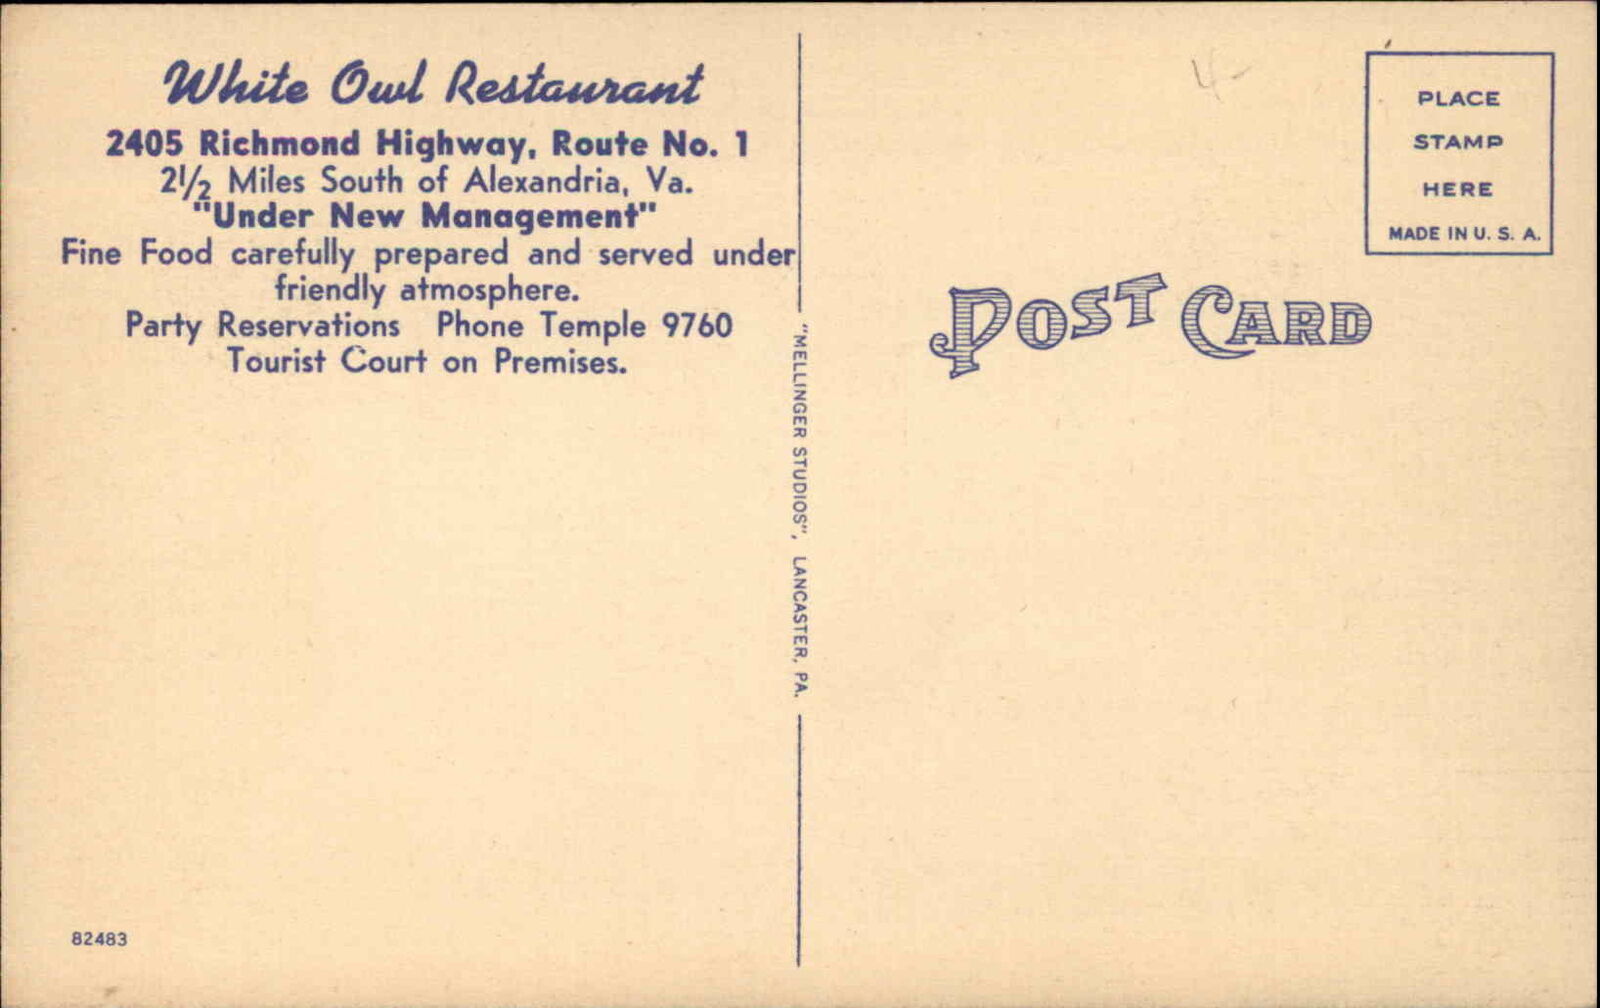 White Owl Restaurant
2405 Richmond Highway, Route No. 1
2 1/2 Miles South of Alexandria, Va.
"Under New Management"
Fine Food carefully prepared and served under
friendly atmosphere.
Party Reservations Phone Temple 9760
Tourist Court on Premises.
82483
"MELLINGER STUDIOS", LANCASTER, PA.
4-
PLACE
STAMP
HERE
MADE IN U. S. A.
POST CARD